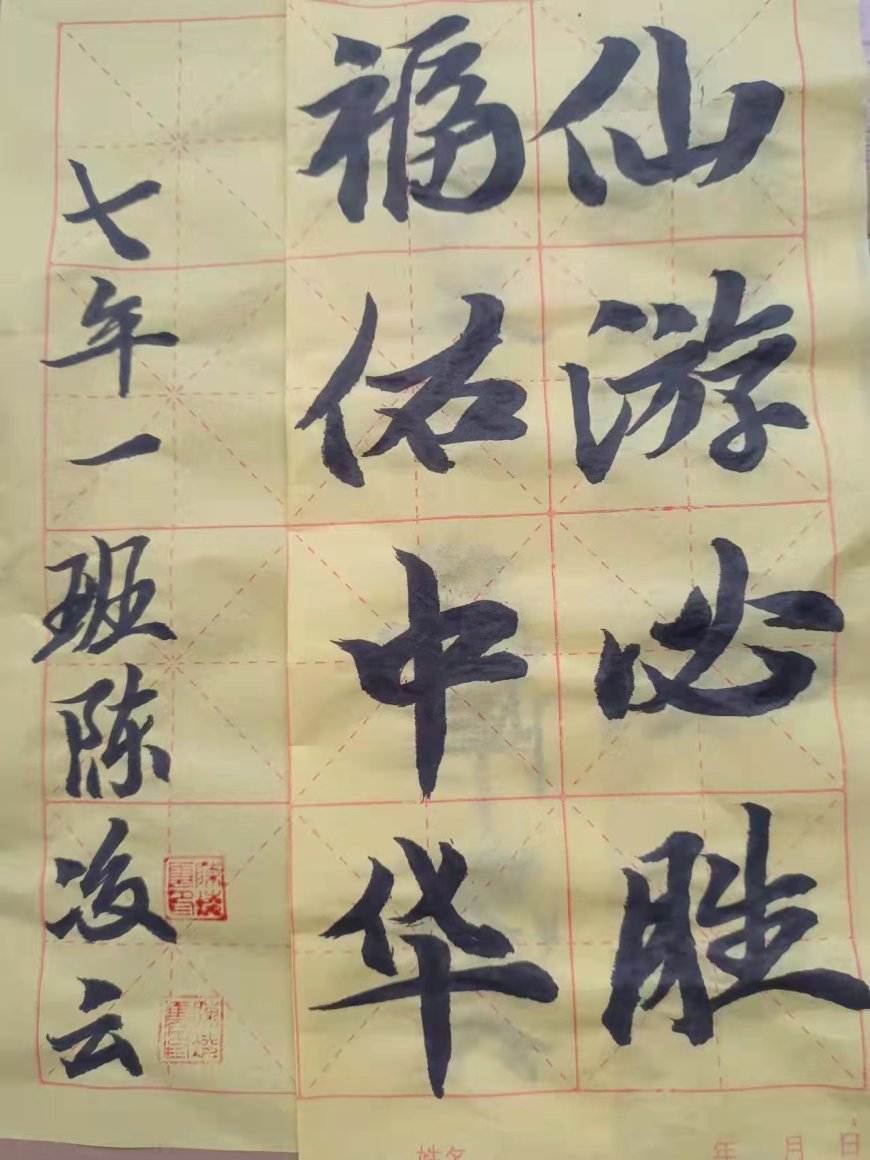 仙游必胜
福佑中华
七年一班陈凌云
姓名
年 月 日